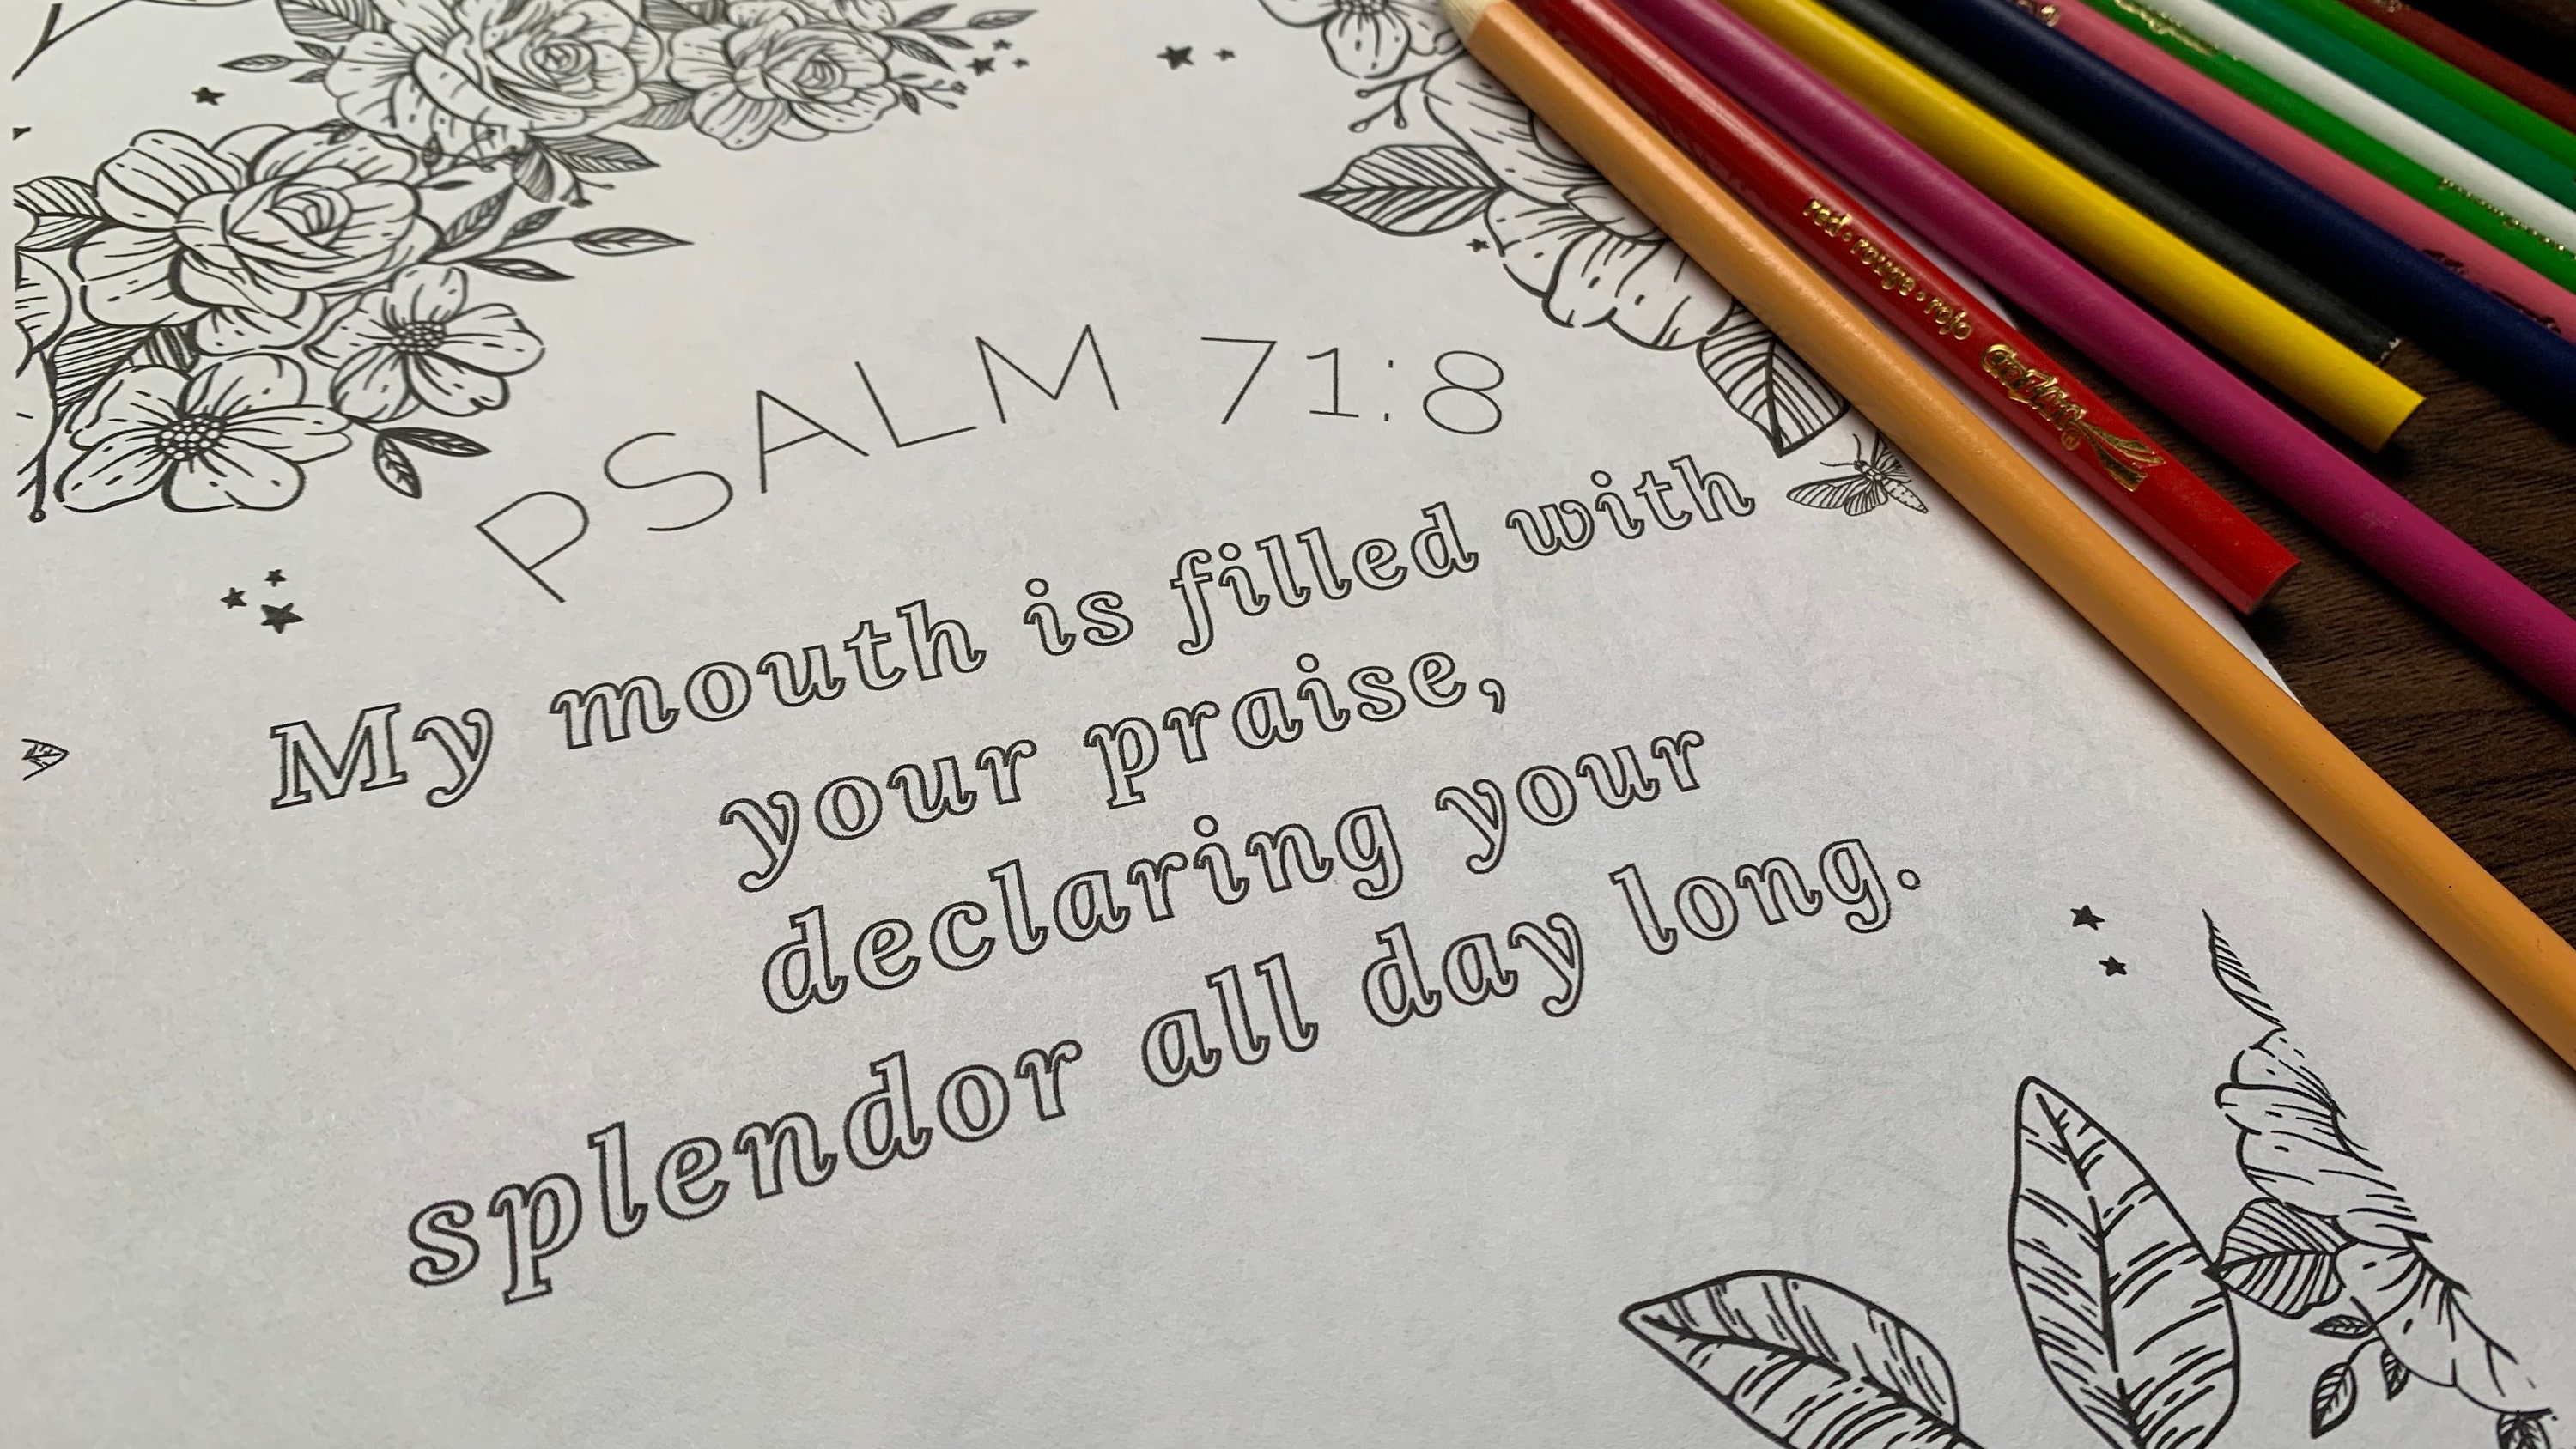 PSALM 71:8
My mouth is filled with
your praise,
declaring your
splendor all day long.
red • rouge • rojo Crayola